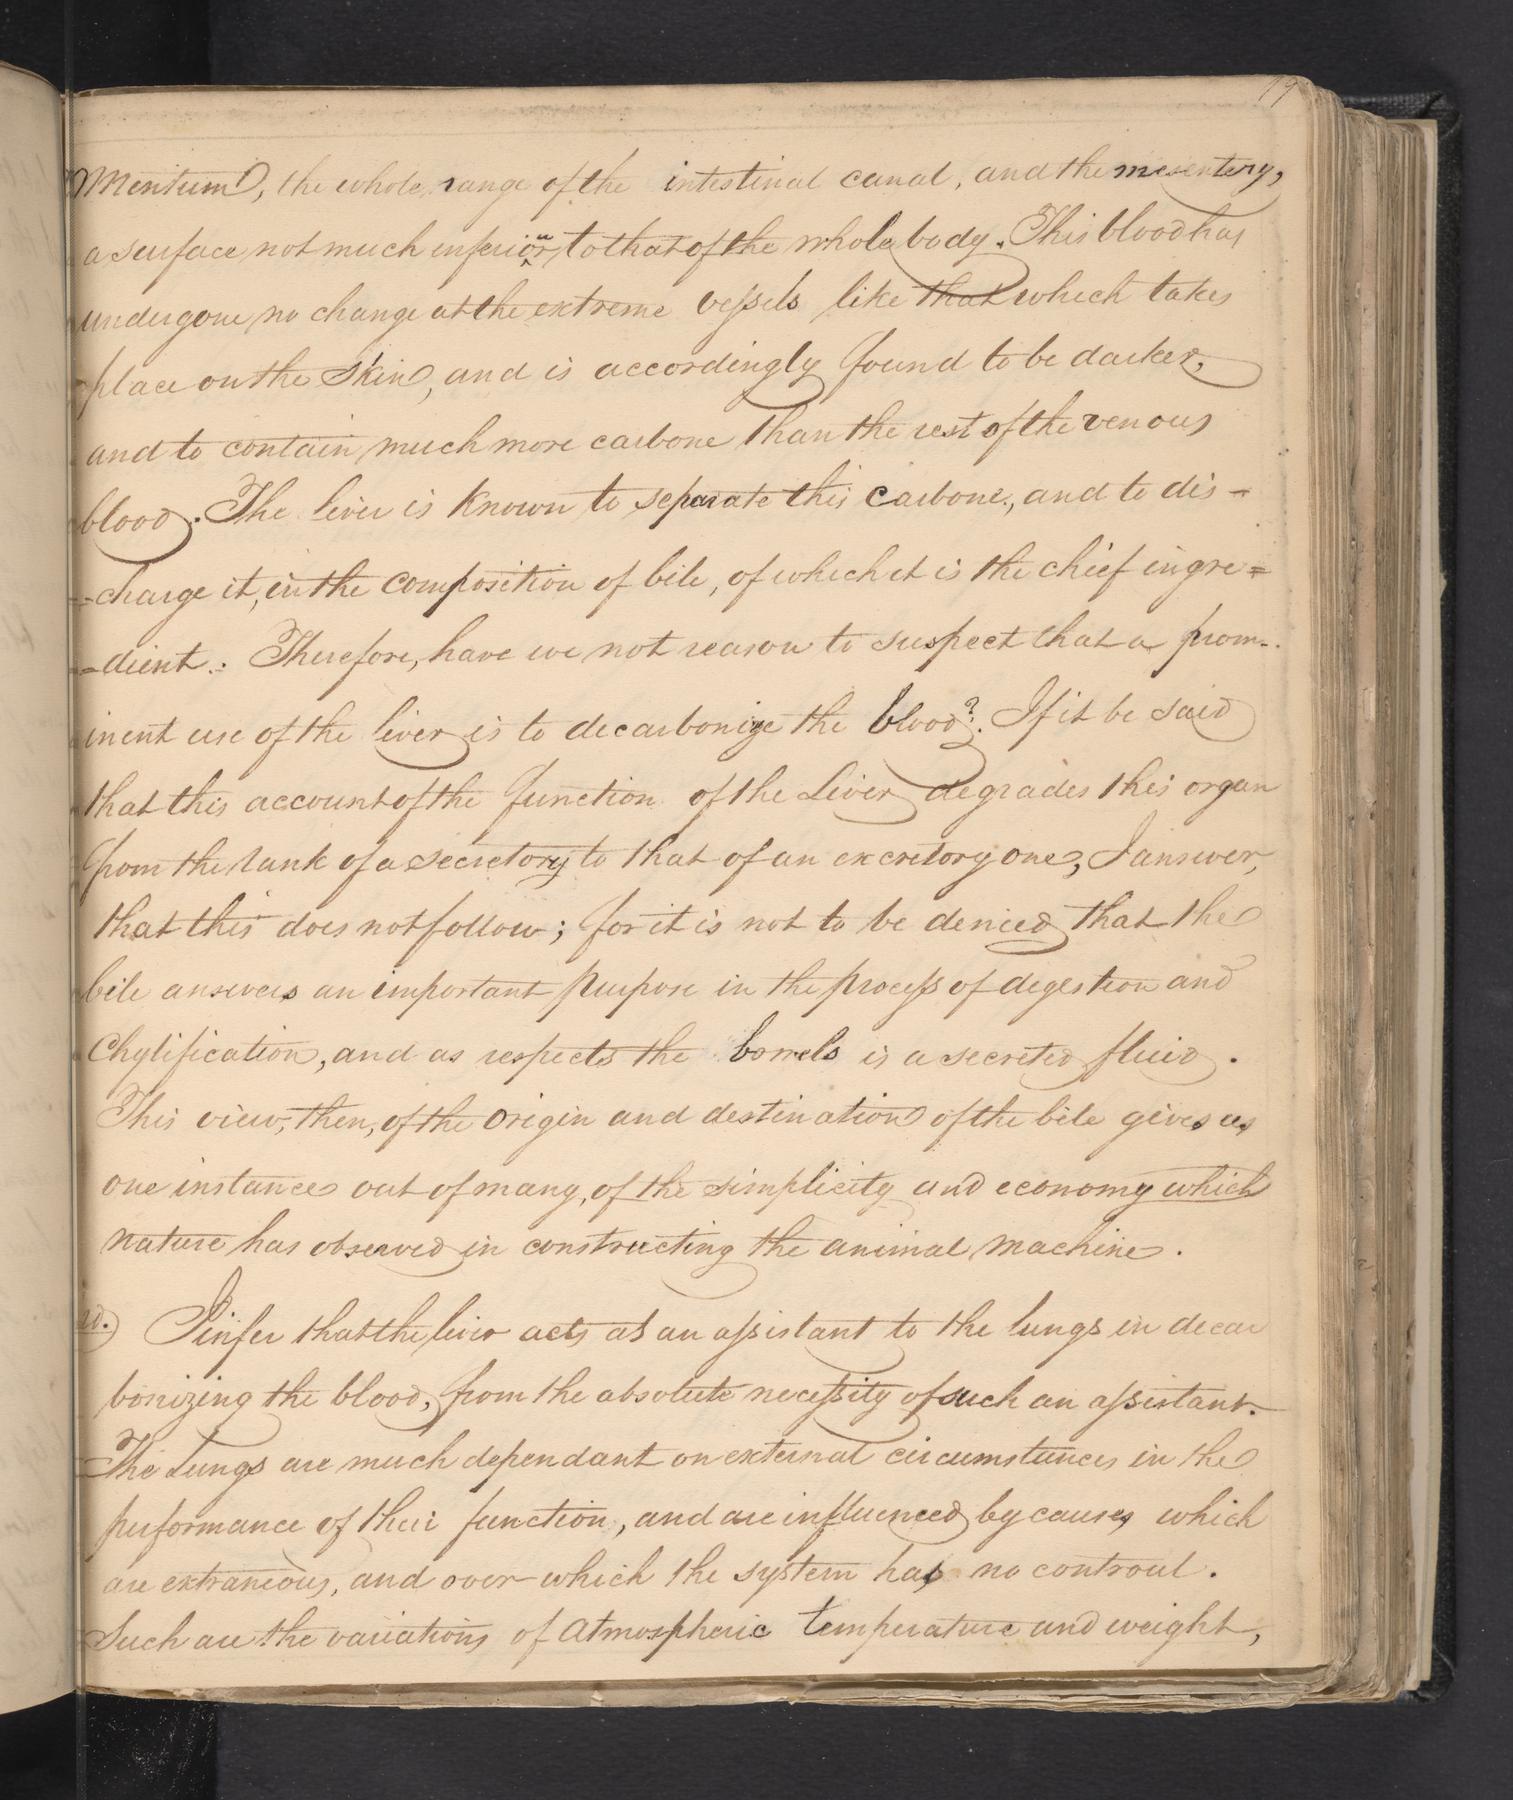 19
Omentum, the whole range of the intestinal canal, and the mesentery,
a surface not much inferior to that of the whole body. This blood has
undergone no change at the extreme vessels like that which takes
place on the Skin, and is accordingly found to be darker,
and to contain much more carbone than the rest of the venous
blood. The liver is known to separate this Carbone, and to dis-
=charge it, in the composition of bile, of which it is the chief ingre=
=dient. Therefore, have we not reason to suspect that a prom-
inent use of the liver is to decarbonize the blood?. If it be said
that this account of the function of the Liver degrades this organ
from the rank of a secretory to that of an excretory one, I answer,
that this does not follow; for it is not to be denied that the
bile answers an important purpose in the process of digestion and
Chylification, and as respects the bowels is a secreted fluid.
This view, then, of the origin and destination of the bile gives us
one instance out of many, of the simplicity and economy which
nature has observed in constructing the animal machine.
2d. I infer that the liver acts as an assistant to the lungs in decar
bonizing the blood, from the absolute necessity of such an assistant.
The Lungs are much dependant on external circumstances in the
performance of their function, and are influenced by causes which
are extraneous, and over which the system has no controul.
Such are the variations of Atmospheric temperature and weight,